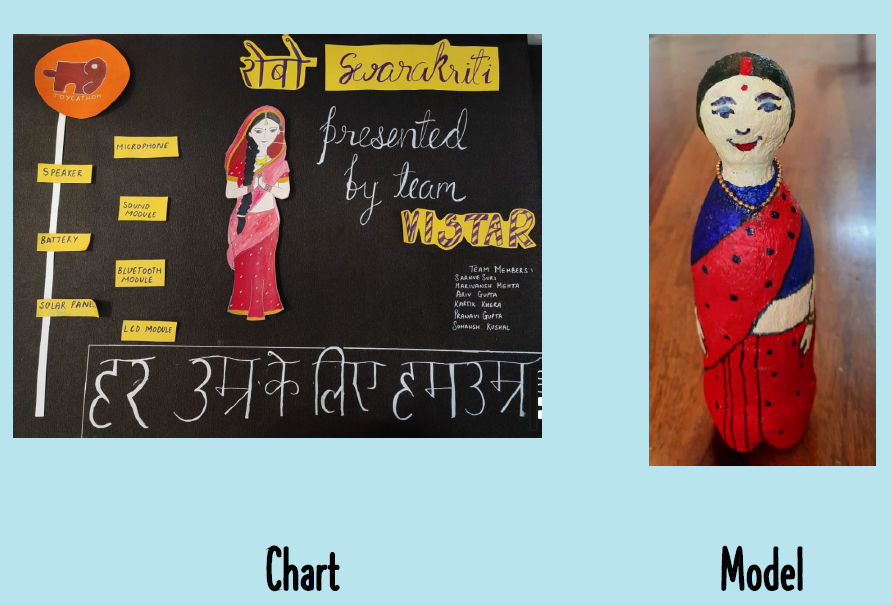 TOYCATHON
रोबो Swarakriti
presented
by team
VISTAR
MICROPHONE
SPEAKER
SOUND
MODULE
BATTERY
BLUETOOTH
MODULE
SOLAR PANE
LCD MODULE
TEAM MEMBERS:
SARHVE SURI
HARIVANSH MEHTA
ARIV GUPTA
KARTIK KHERA
PRANAVI GUPTA
SOHANSH KUSHAL
हर उम्र के लिए हमउम्र
Chart
Model